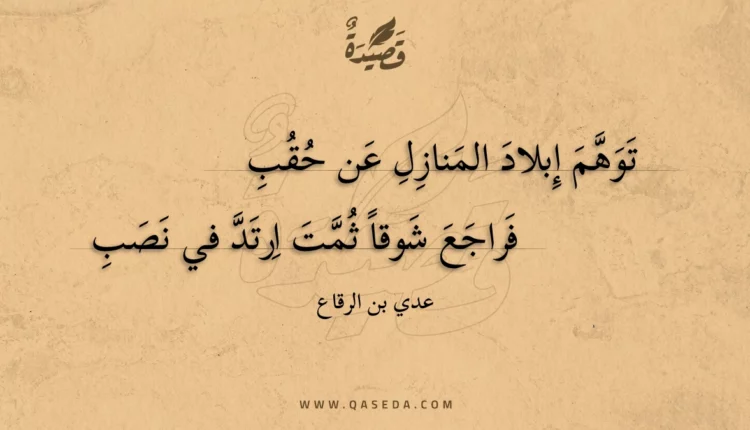 قَصِيْدَةٌ
تَوَهَّمَ إِبلادَ المَنازِلِ عَن حُقُبِ
فَراجَعَ شَوقاً ثُمَّتَ اِرتَدَّ في نَصَبِ
عدي بن الرقاع
WWW.QASEDA.COM